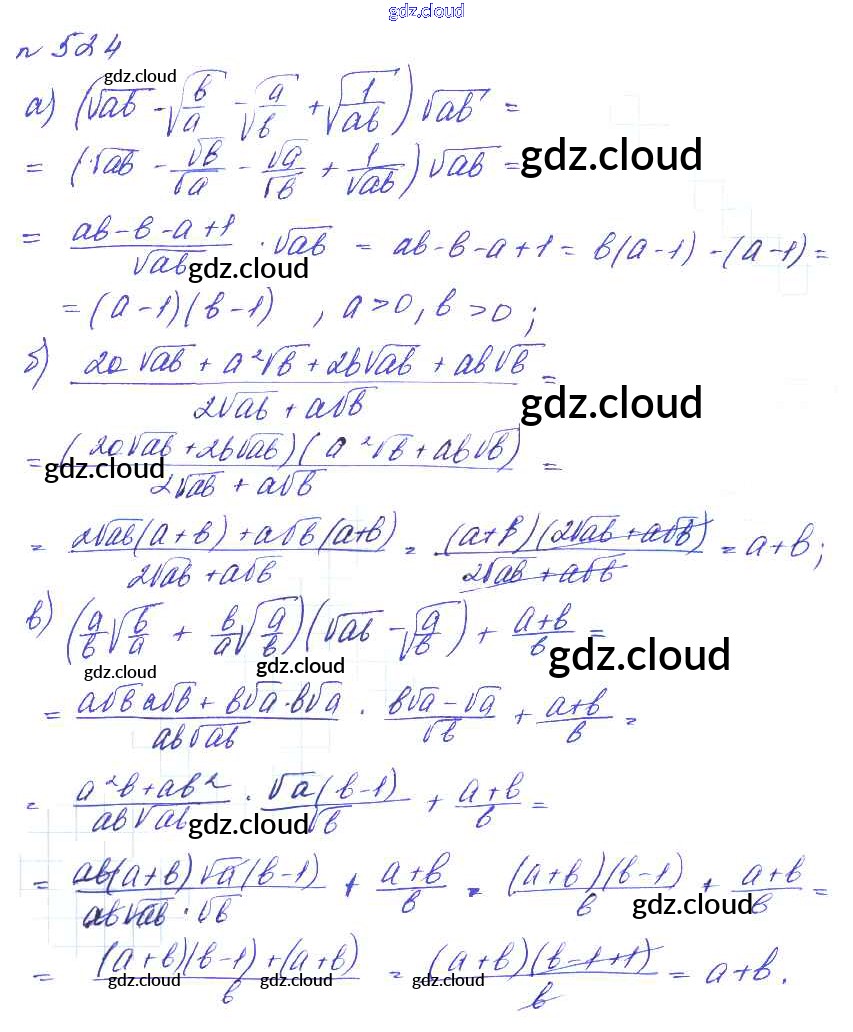 gdz.cloud
n 524
gdz.cloud
а) (√ab - √(b/a) - √(a/b) + √(1/ab)) √ab =
= (√ab - √b/√a - √a/√b + 1/√ab) √ab = gdz.cloud
= (ab-b-a+1)/√ab · √ab = ab-b-a+1 = b(a-1) - (a-1) =
gdz.cloud
= (a-1)(b-1) , a>0, b>0;
б) (2a√ab + a²√b + 2b√ab + ab√b)/(2√ab + a√b) =
gdz.cloud
= (2a√ab + 2b√ab)(a²√b + ab√b)/(2√ab + a√b) =
gdz.cloud
= (2√ab(a+b) + a√b(a+b))/(2√ab + a√b) = (a+b)(2√ab + a√b)/(2√ab + a√b) = a+b;
в) (a/b √(b/a) + b/a √(a/b))(√ab - √(a/b)) + (a+b)/b =
gdz.cloud gdz.cloud gdz.cloud
= (a√b a√b + b√a·b√a)/(ab√ab) · (b√a - √a)/√b + (a+b)/b =
= (a²b + ab²)/(ab√ab) · √a(b-1)/√b + (a+b)/b =
gdz.cloud
= ab(a+b)√a(b-1)/(ab√ab·√b) + (a+b)/b = (a+b)(b-1)/b + (a+b)/b =
gdz.cloud
= ((a+b)(b-1)+(a+b))/b = (a+b)(b-1+1)/b = a+b.
gdz.cloud gdz.cloud gdz.cloud gdz.cloud